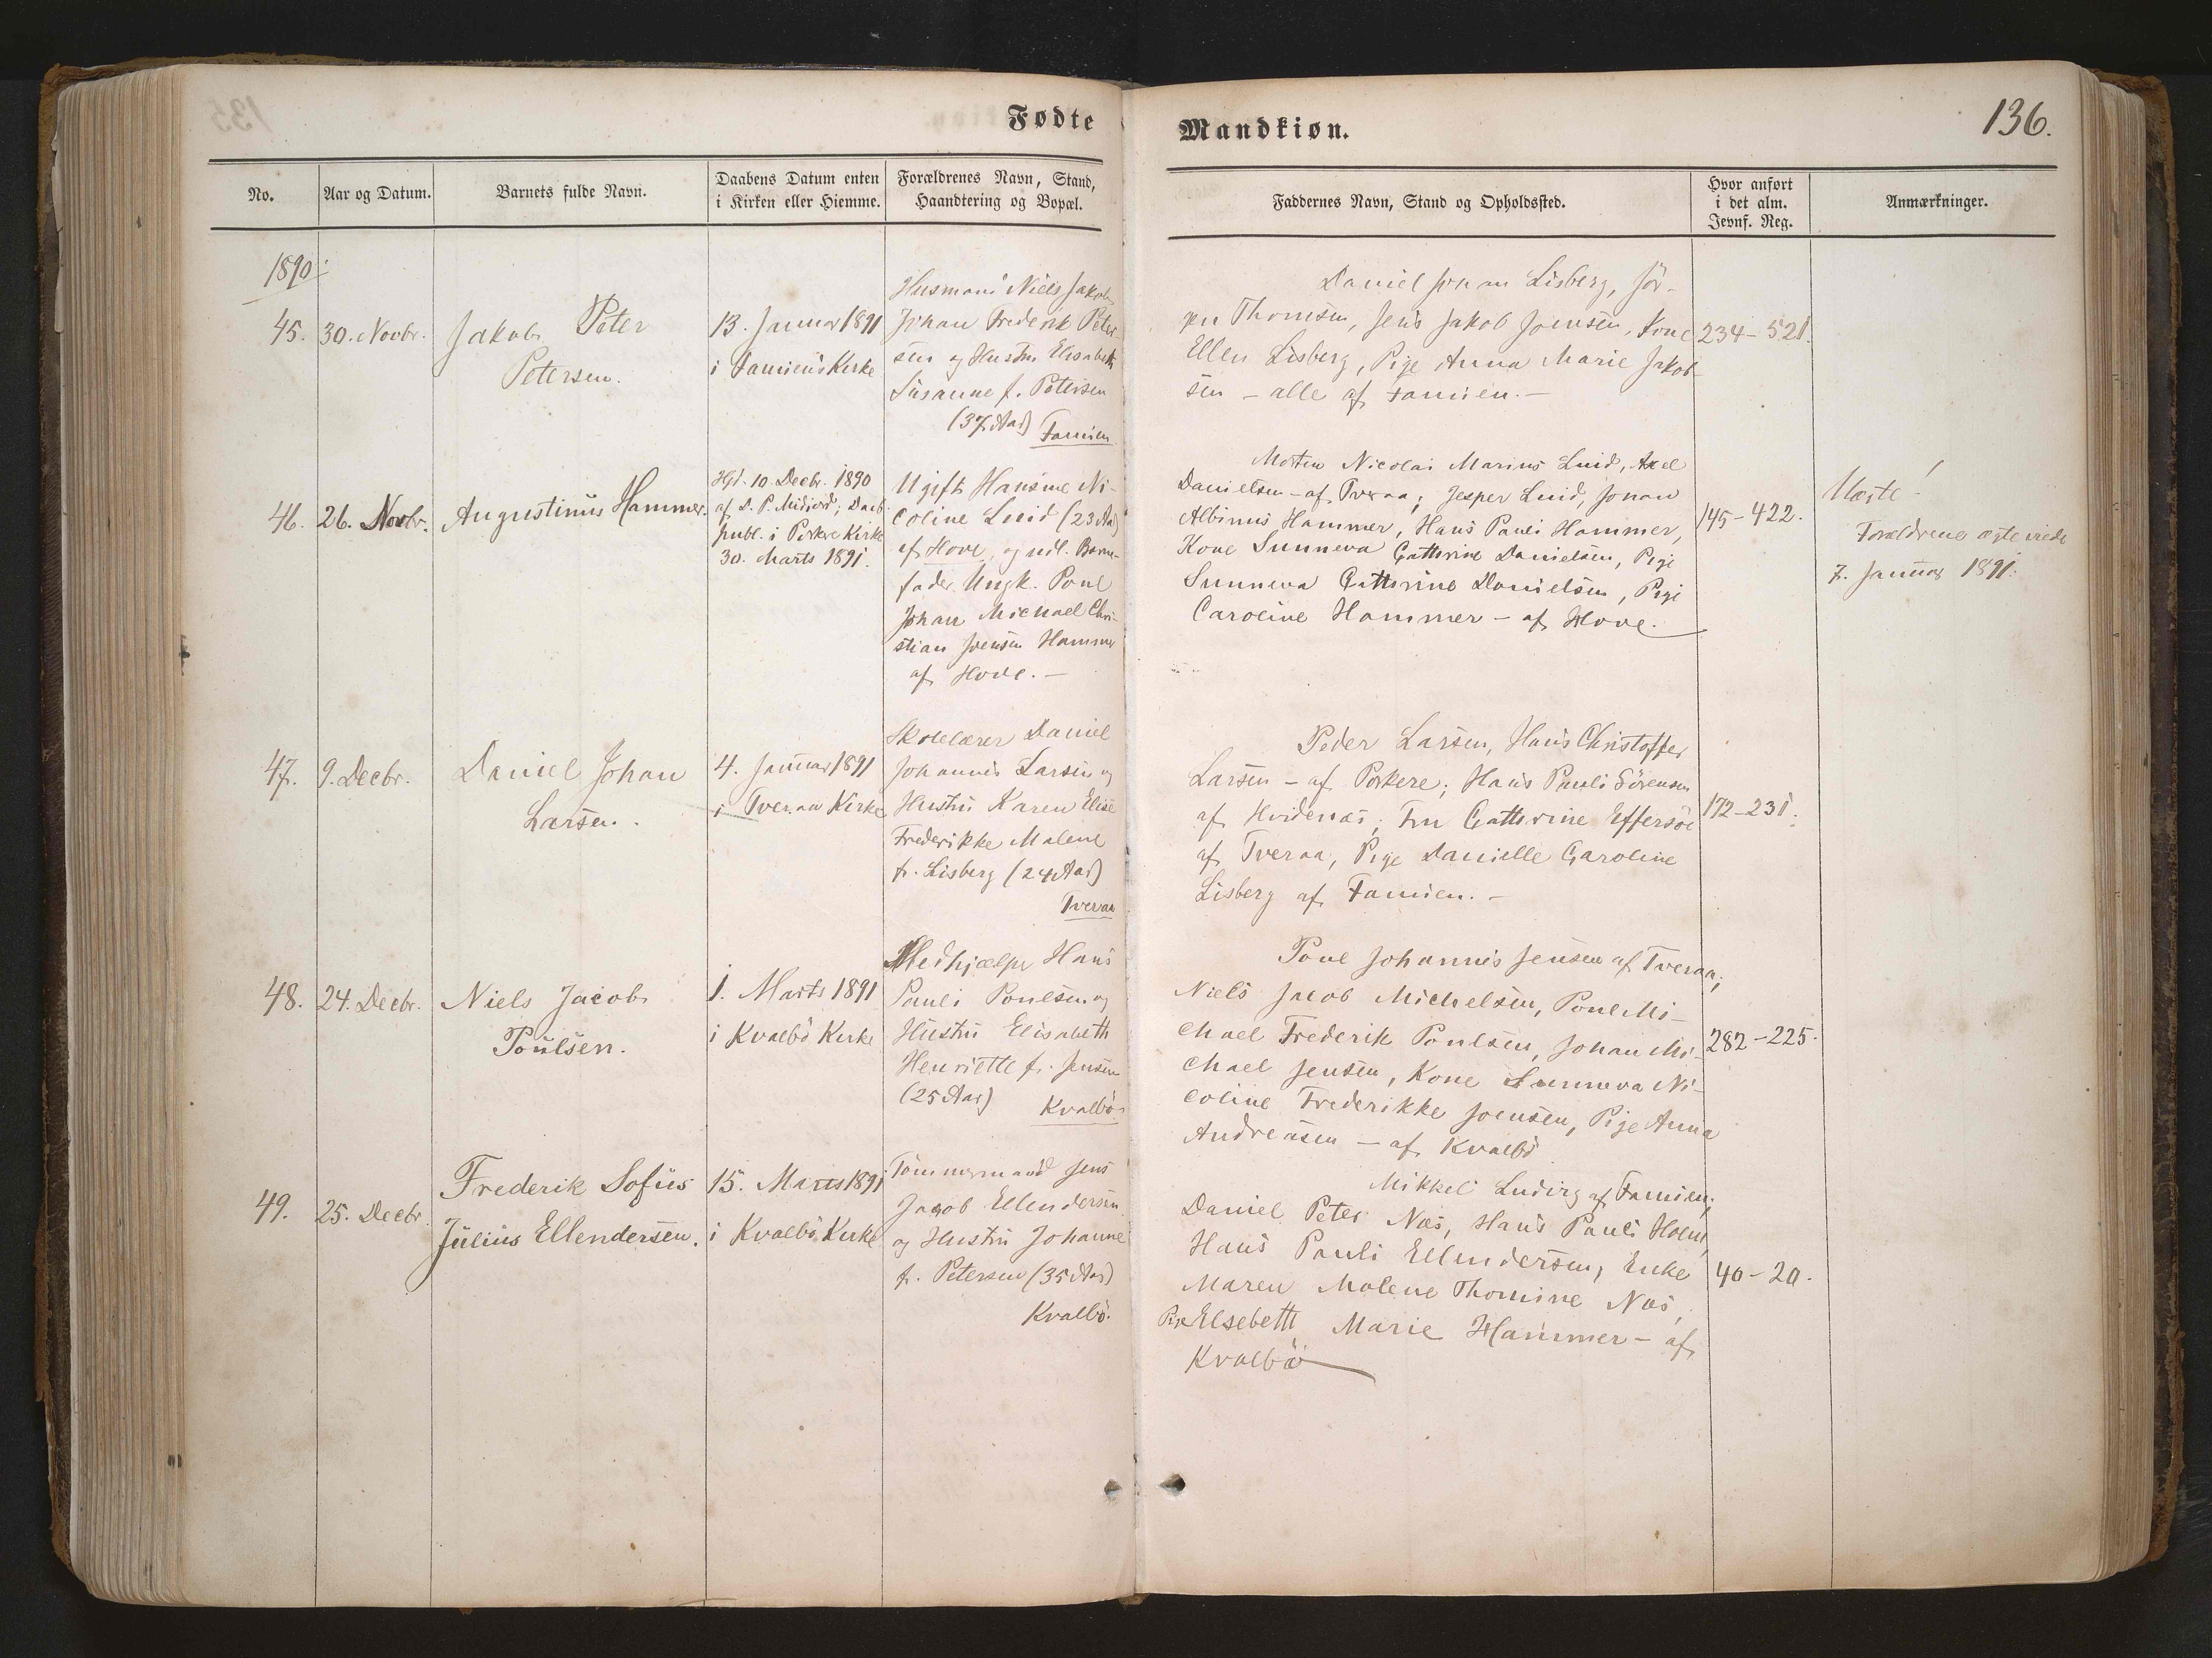 Fødte
No.
Aar og Datum.
Barnets fulde Navn.
Daabens Datum enten
i Kirken eller Hiemme.
Forældrenes Navn, Stand,
Haandtering og Bopæl.
1890:
45.
30. Novbr.
Jakob Peter
Petersen.
13. Januar 1891
i Famiens Kirke
Husmand Niels Jakob
Johan Frederik Peter-
sen og Hustru Elisabeth
Susanne f. Petersen
(37 Aar) Famien.
46.
26. Novbr.
Augustinus Hammer.
Hjd. 10. Decbr. 1890
af D. P. Midjord; Daab
publ. i Porkere Kirke
30. Marts 1891.
Ugift Hansine Ni-
coline Luid (23 Aar)
af Hove, og udl. Barne-
fader Ungk. Poul
Johan Michael Chri-
stian Joensen Hammer
af Hove. —
47.
9. Decbr.
Daniel Johan
Larsen.
4. Januar 1891
i Tveraa Kirke
Skolelærer Daniel
Johannes Larsen og
Hustru Karen Elise
Frederikke Malene
f. Lisberg (24 Aar)
Tveraa
48.
24. Decbr.
Niels Jacob
Poulsen.
1. Marts 1891
i Kvalbö Kirke
Medhjælper Hans
Pauli Poulsen og
Hustru Elisabeth
Henriette f. Jensen
(25 Aar)
Kvalbö
49.
25. Decbr.
Frederik Sofus
Julius Ellendersen.
15. Marts 1891
i Kvalbö Kirke
Tömmermand Jens
Jacob Ellendersen
og Hustru Johanne
f. Petersen (35 Aar)
Kvalbö.
Mandkiøn.
136.
Faddernes Navn, Stand og Opholdssted.
Hvor anført
i det alm.
Jevnf. Reg.
Anmærkninger.
Daniel Johan Lisberg, Jör-
gen Thomsen, Jens Jakob Joensen, Kone
Ellen Lisberg, Pige Anna Marie Jakob-
sen – alle af Famien. —
234–521.
Morten Nicolai Marius Luid, Axel
Danielsen – af Tveraa; Jesper Luid, Johan
Albinus Hammer, Hans Pauli Hammer,
Kone Sunneva Cathrine Danielsen, Pige
Sunneva Cathrine Danielsen, Pige
Caroline Hammer – af Hove.
145–422.
Uægte!
Forældrene ægteviede
7. Januar 1891.
Peder Larsen, Hans Christoffer
Larsen – af Porkere; Hans Pauli Sörensen
af Hvidenæs; Fru Cathrine Effersöe
af Tveraa, Pige Danielle Caroline
Lisberg af Famien. –
172–231.
Poul Johannes Jensen af Tveraa;
Niels Jacob Michelsen, Poul Mi-
chael Frederik Poulsen, Johan Mi-
chael Jensen, Kone Sunneva Ni-
coline Frederikke Joensen, Pige Anna
Andreasen – af Kvalbö
282–225.
Mikkel Ludvig af Famien;
Daniel Peter Næs, Hans Pauli Holm,
Hans Pauli Ellendersen, Enke
Maren Malene Thomine Næs,
Pige Elsebeth Marie Hammer – af
Kvalbö
40–20.